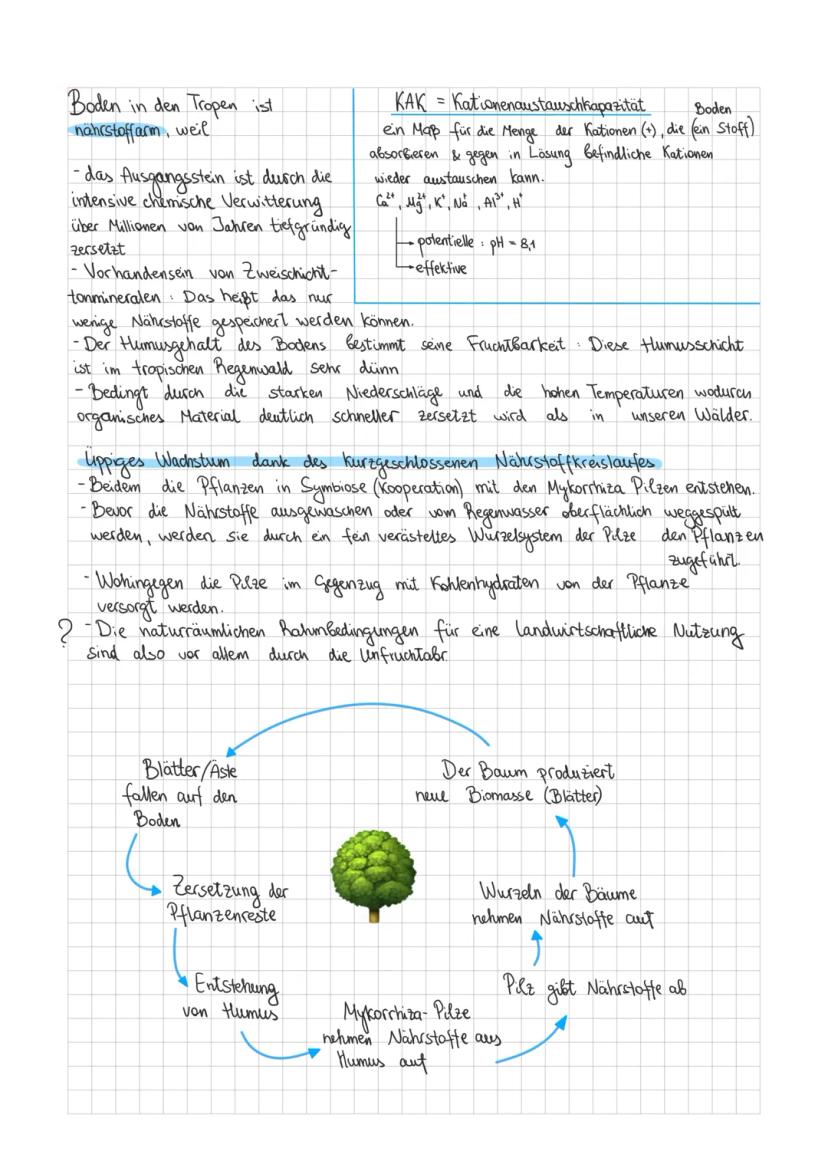 Boden in den Tropen ist
nährstoffarm, weil
- das Ausgangsstein ist durch die
intensive chemische Verwitterung
über Millionen von Jahren tiefgründig
zersetzt
- Vorhandensein von Zweischicht-
tonmineralen : Das heißt das nur
wenige Nährstoffe gespeichert werden können.
- Der Humusgehalt des Bodens bestimmt seine Fruchtbarkeit : Diese Humusschicht
ist im tropischen Regenwald sehr dünn
- Bedingt durch die starken Niederschläge und die hohen Temperaturen wodurch
organisches Material deutlich schneller zersetzt wird als in unseren Wälder.
KAK = Kationenaustauschkapazität
Boden
ein Maß für die Menge der Kationen (+), die (ein Stoff)
absorbieren & gegen in Lösung befindliche Kationen
wieder austauschen kann.
Ca²⁺, Mg²⁺, K⁺, Na⁺, Al³⁺, H⁺
potentielle : pH = 8,1
effektive
Üppiges Wachstum dank des kurzgeschlossenen Nährstoffkreislaufes
- Beidem die Pflanzen in Symbiose (Kooperation) mit den Mykorrhiza Pilzen entstehen.
- Bevor die Nährstoffe ausgewaschen oder vom Regenwasser oberflächlich weggespült
werden, werden sie durch ein fein verästeltes Wurzelsystem der Pilze den Pflanzen
zugeführt.
- Wohingegen die Pilze im Gegenzug mit Kohlenhydraten von der Pflanze
versorgt werden.
? - Die naturräumlichen Rahmbedingungen für eine landwirtschaftliche Nutzung
sind also vor allem durch die Unfruchtabr.
Blätter/Äste
fallen auf den
Boden
Zersetzung der
Pflanzenreste
Entstehung
von Humus
Mykorrhiza-Pilze
nehmen Nährstoffe aus
Humus auf
Pilz gibt Nährstoffe ab
Wurzeln der Bäume
nehmen Nährstoffe auf
Der Baum produziert
neue Biomasse (Blätter)